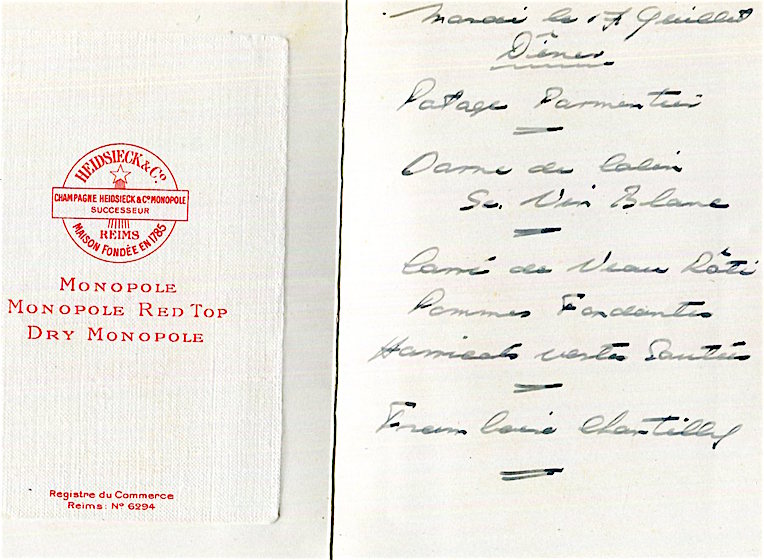 HEIDSIECK & Cº
CHAMPAGNE HEIDSIECK & Cº MONOPOLE
SUCCESSEUR
REIMS
MAISON FONDÉE EN 1785
MONOPOLE
MONOPOLE RED TOP
DRY MONOPOLE
Registre du Commerce
Reims: Nº 6294
Mardi le 17 Juillet
Dîner
Potage Parmentier
Darne de Colin
Sc. Vin Blanc
Carré de Veau Rôti
Pommes Fondantes
Harricots vertes Sautés
Framboise Chantilly